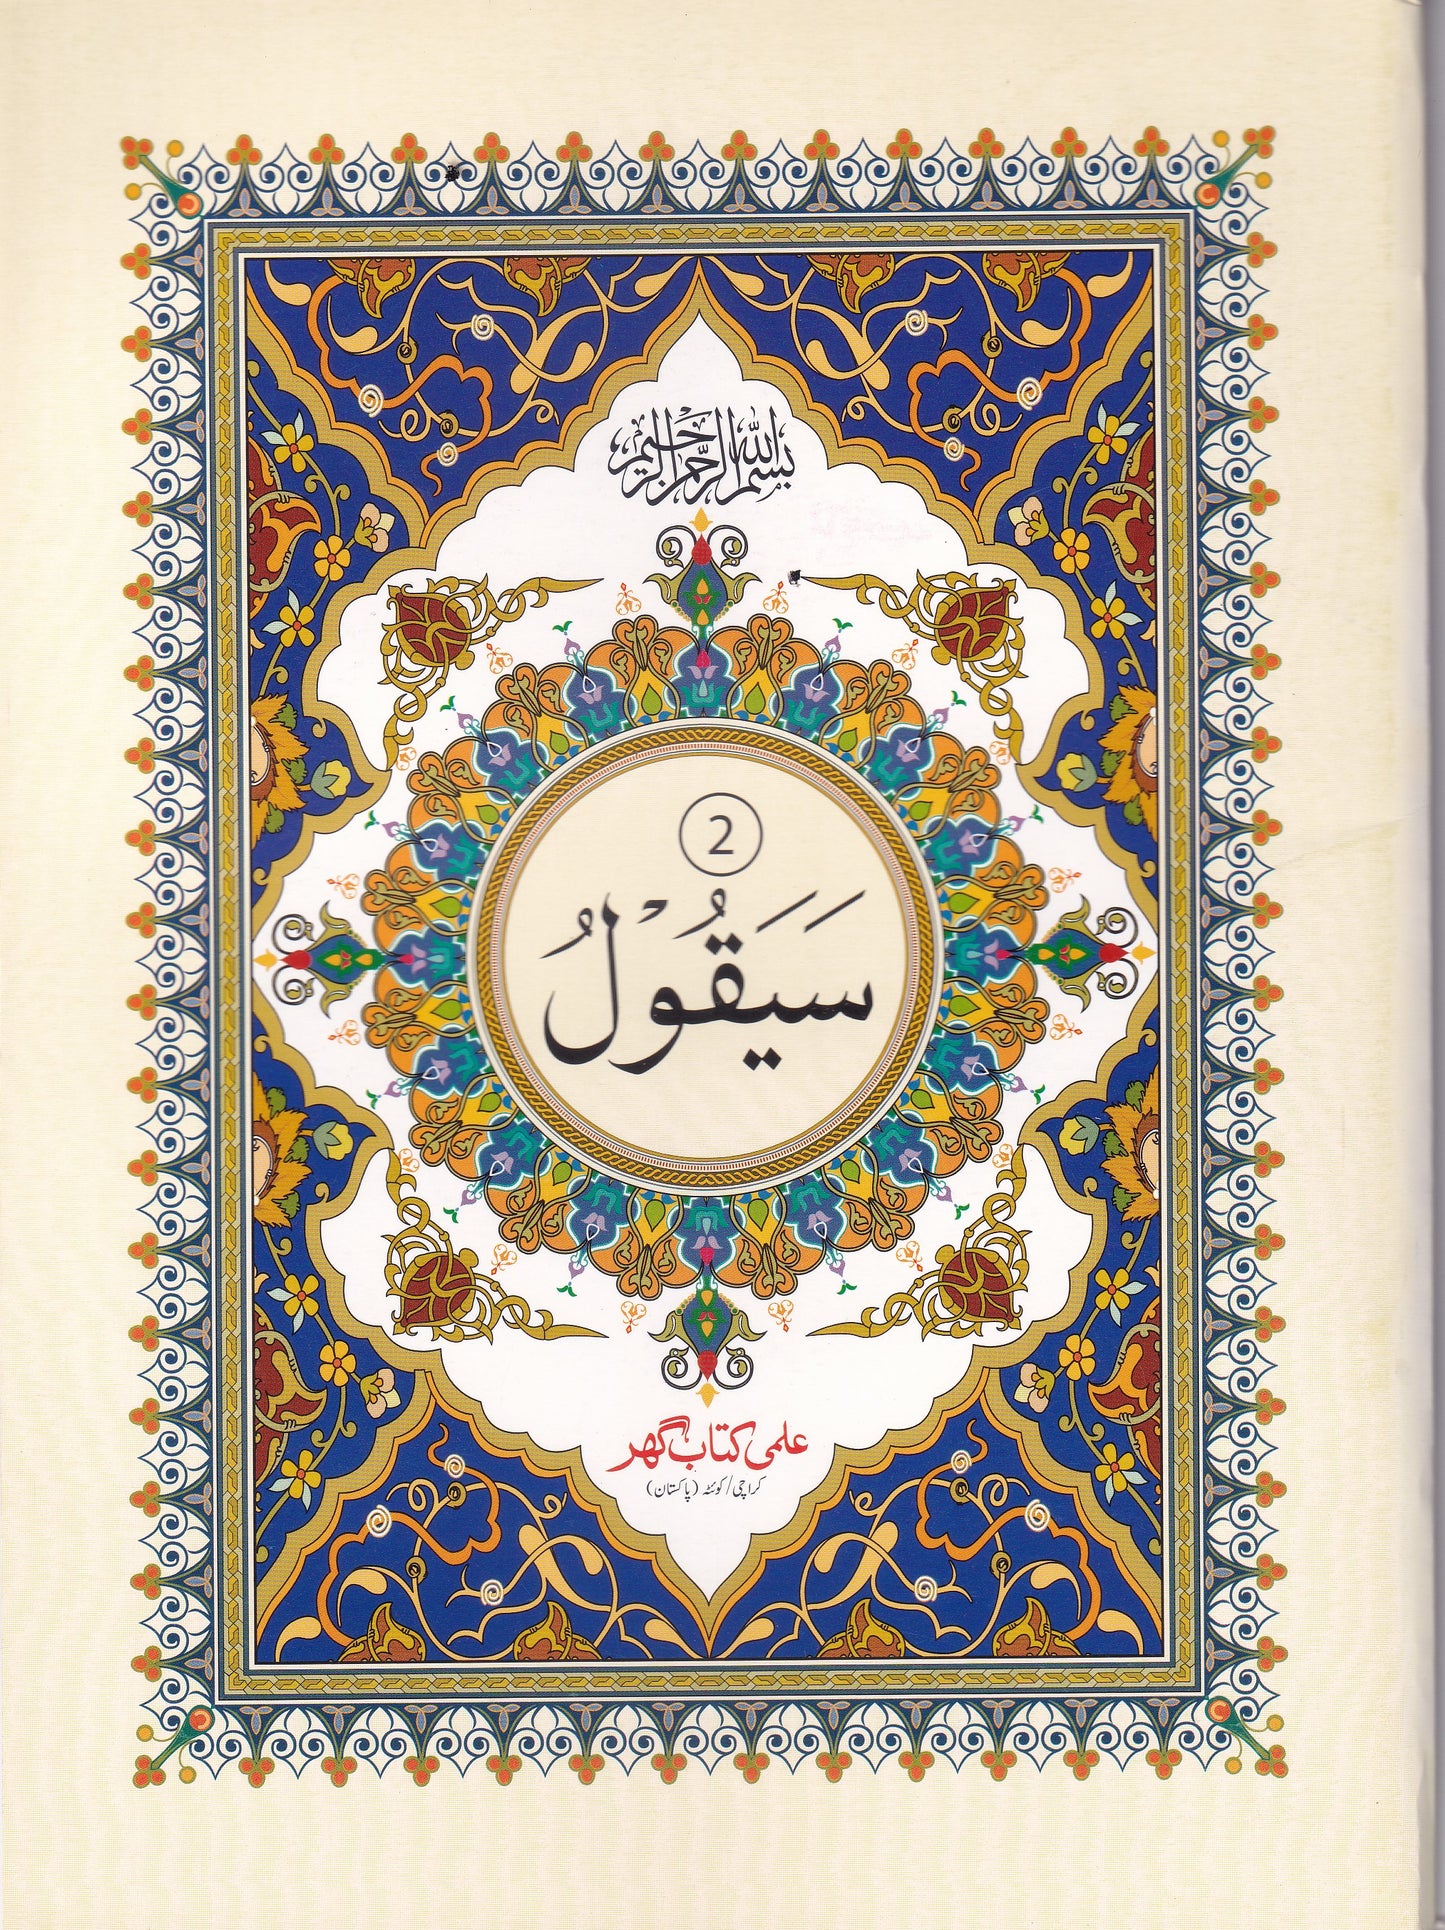 بسم الله الرحمن الرحيم
2
سَيَقُوْلُ
علمی کتاب گھر
کراچی/کوئٹہ (پاکستان)